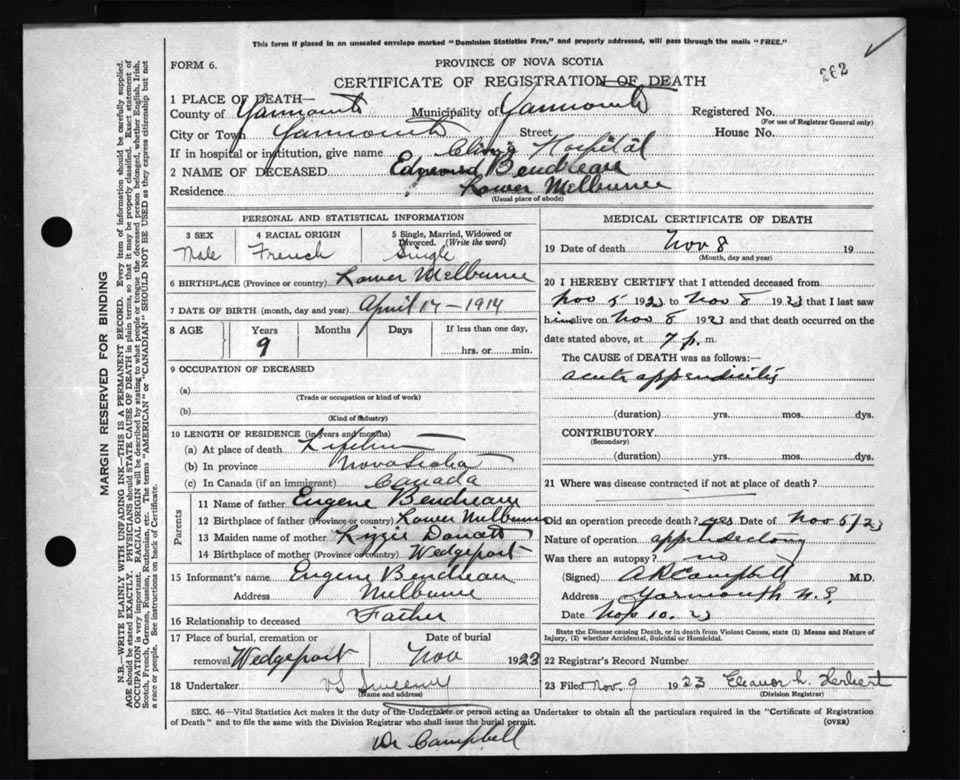 This form if placed in an unsealed envelope marked "Dominion Statistics Free," and properly addressed, will pass through the mails "FREE."
262
FORM 6.
PROVINCE OF NOVA SCOTIA
CERTIFICATE OF REGISTRATION OF DEATH
1 PLACE OF DEATH—
County of Yarmouth Municipality of Yarmouth Registered No.
(For use of Registrar General only)
City or Town Yarmouth Street House No.
If in hospital or institution, give name Hospital
2 NAME OF DECEASED Edmond Boudreau
Residence Lower Melburne
(Usual place of abode)
PERSONAL AND STATISTICAL INFORMATION
3 SEX
Male
4 RACIAL ORIGIN
French
5 Single, Married, Widowed or Divorced. (Write the word)
Single
6 BIRTHPLACE (Province or country) Lower Melburne
7 DATE OF BIRTH (month, day and year) April 14 - 1914
8 AGE Years Months Days If less than one day,
9 hrs. or min.
9 OCCUPATION OF DECEASED
(a)
(Trade or occupation or kind of work)
(b)
(Kind of industry)
10 LENGTH OF RESIDENCE (in years and months)
(a) At place of death Lifetime
(b) In province Nova Scotia
(c) In Canada (if an immigrant) Canada
Parents
11 Name of father Eugene Boudreau
12 Birthplace of father (Province or country) Lower Melburne
13 Maiden name of mother Lizzie
14 Birthplace of mother (Province or country) Wedgeport
15 Informant's name Eugene Boudreau
Address Melburne
16 Relationship to deceased Father
17 Place of burial, cremation or removal Wedgeport
Date of burial
Nov 1923
18 Undertaker Sweeny
(Name and address)
MEDICAL CERTIFICATE OF DEATH
19 Date of death Nov 8 19
(Month, day and year)
20 I HEREBY CERTIFY that I attended deceased from
Nov 5 1923 to Nov 8 1923 that I last saw
him alive on Nov 8 1923 and that death occurred on the
date stated above, at 7 p. m.
The CAUSE OF DEATH was as follows:—
acute appendicitis
(duration) yrs. mos. dys.
CONTRIBUTORY
(Secondary)
(duration) yrs. mos. dys.
21 Where was disease contracted if not at place of death?
Did an operation precede death? yes Date of Nov 5/23
Nature of operation appendectomy
Was there an autopsy? no
(Signed) A R Campbell M.D.
Address Yarmouth N.S.
Date Nov 10. 23
State the Disease causing Death, or in death from Violent Causes, state (1) Means and Nature of
Injury, (2) whether Accidental, Suicidal or Homicidal.
22 Registrar's Record Number
23 Filed Nov. 9 1923 Eleanor L. Herbert
(Division Registrar)
SEC. 46—Vital Statistics Act makes it the duty of the Undertaker or person acting as Undertaker to obtain all the particulars required in the "Certificate of Registration
of Death" and to file the same with the Division Registrar who shall issue the burial permit. (OVER)
Dr Campbell
MARGIN RESERVED FOR BINDING
N.B.—WRITE PLAINLY WITH UNFADING INK—THIS IS A PERMANENT RECORD. Every item of information should be carefully supplied.
AGE should be stated EXACTLY. PHYSICIANS should STATE CAUSE OF DEATH in plain terms, so that it may be properly classified. Exact statement of
OCCUPATION is very important. RACIAL ORIGIN will be described by stating to what people or tongue the deceased person belonged, whether English, Irish,
Scotch, French, German, Russian, Ruthenian, etc. The terms "AMERICAN" or "CANADIAN" SHOULD NOT BE USED as they express citizenship but not
a race or people. See instructions on back of Certificate.